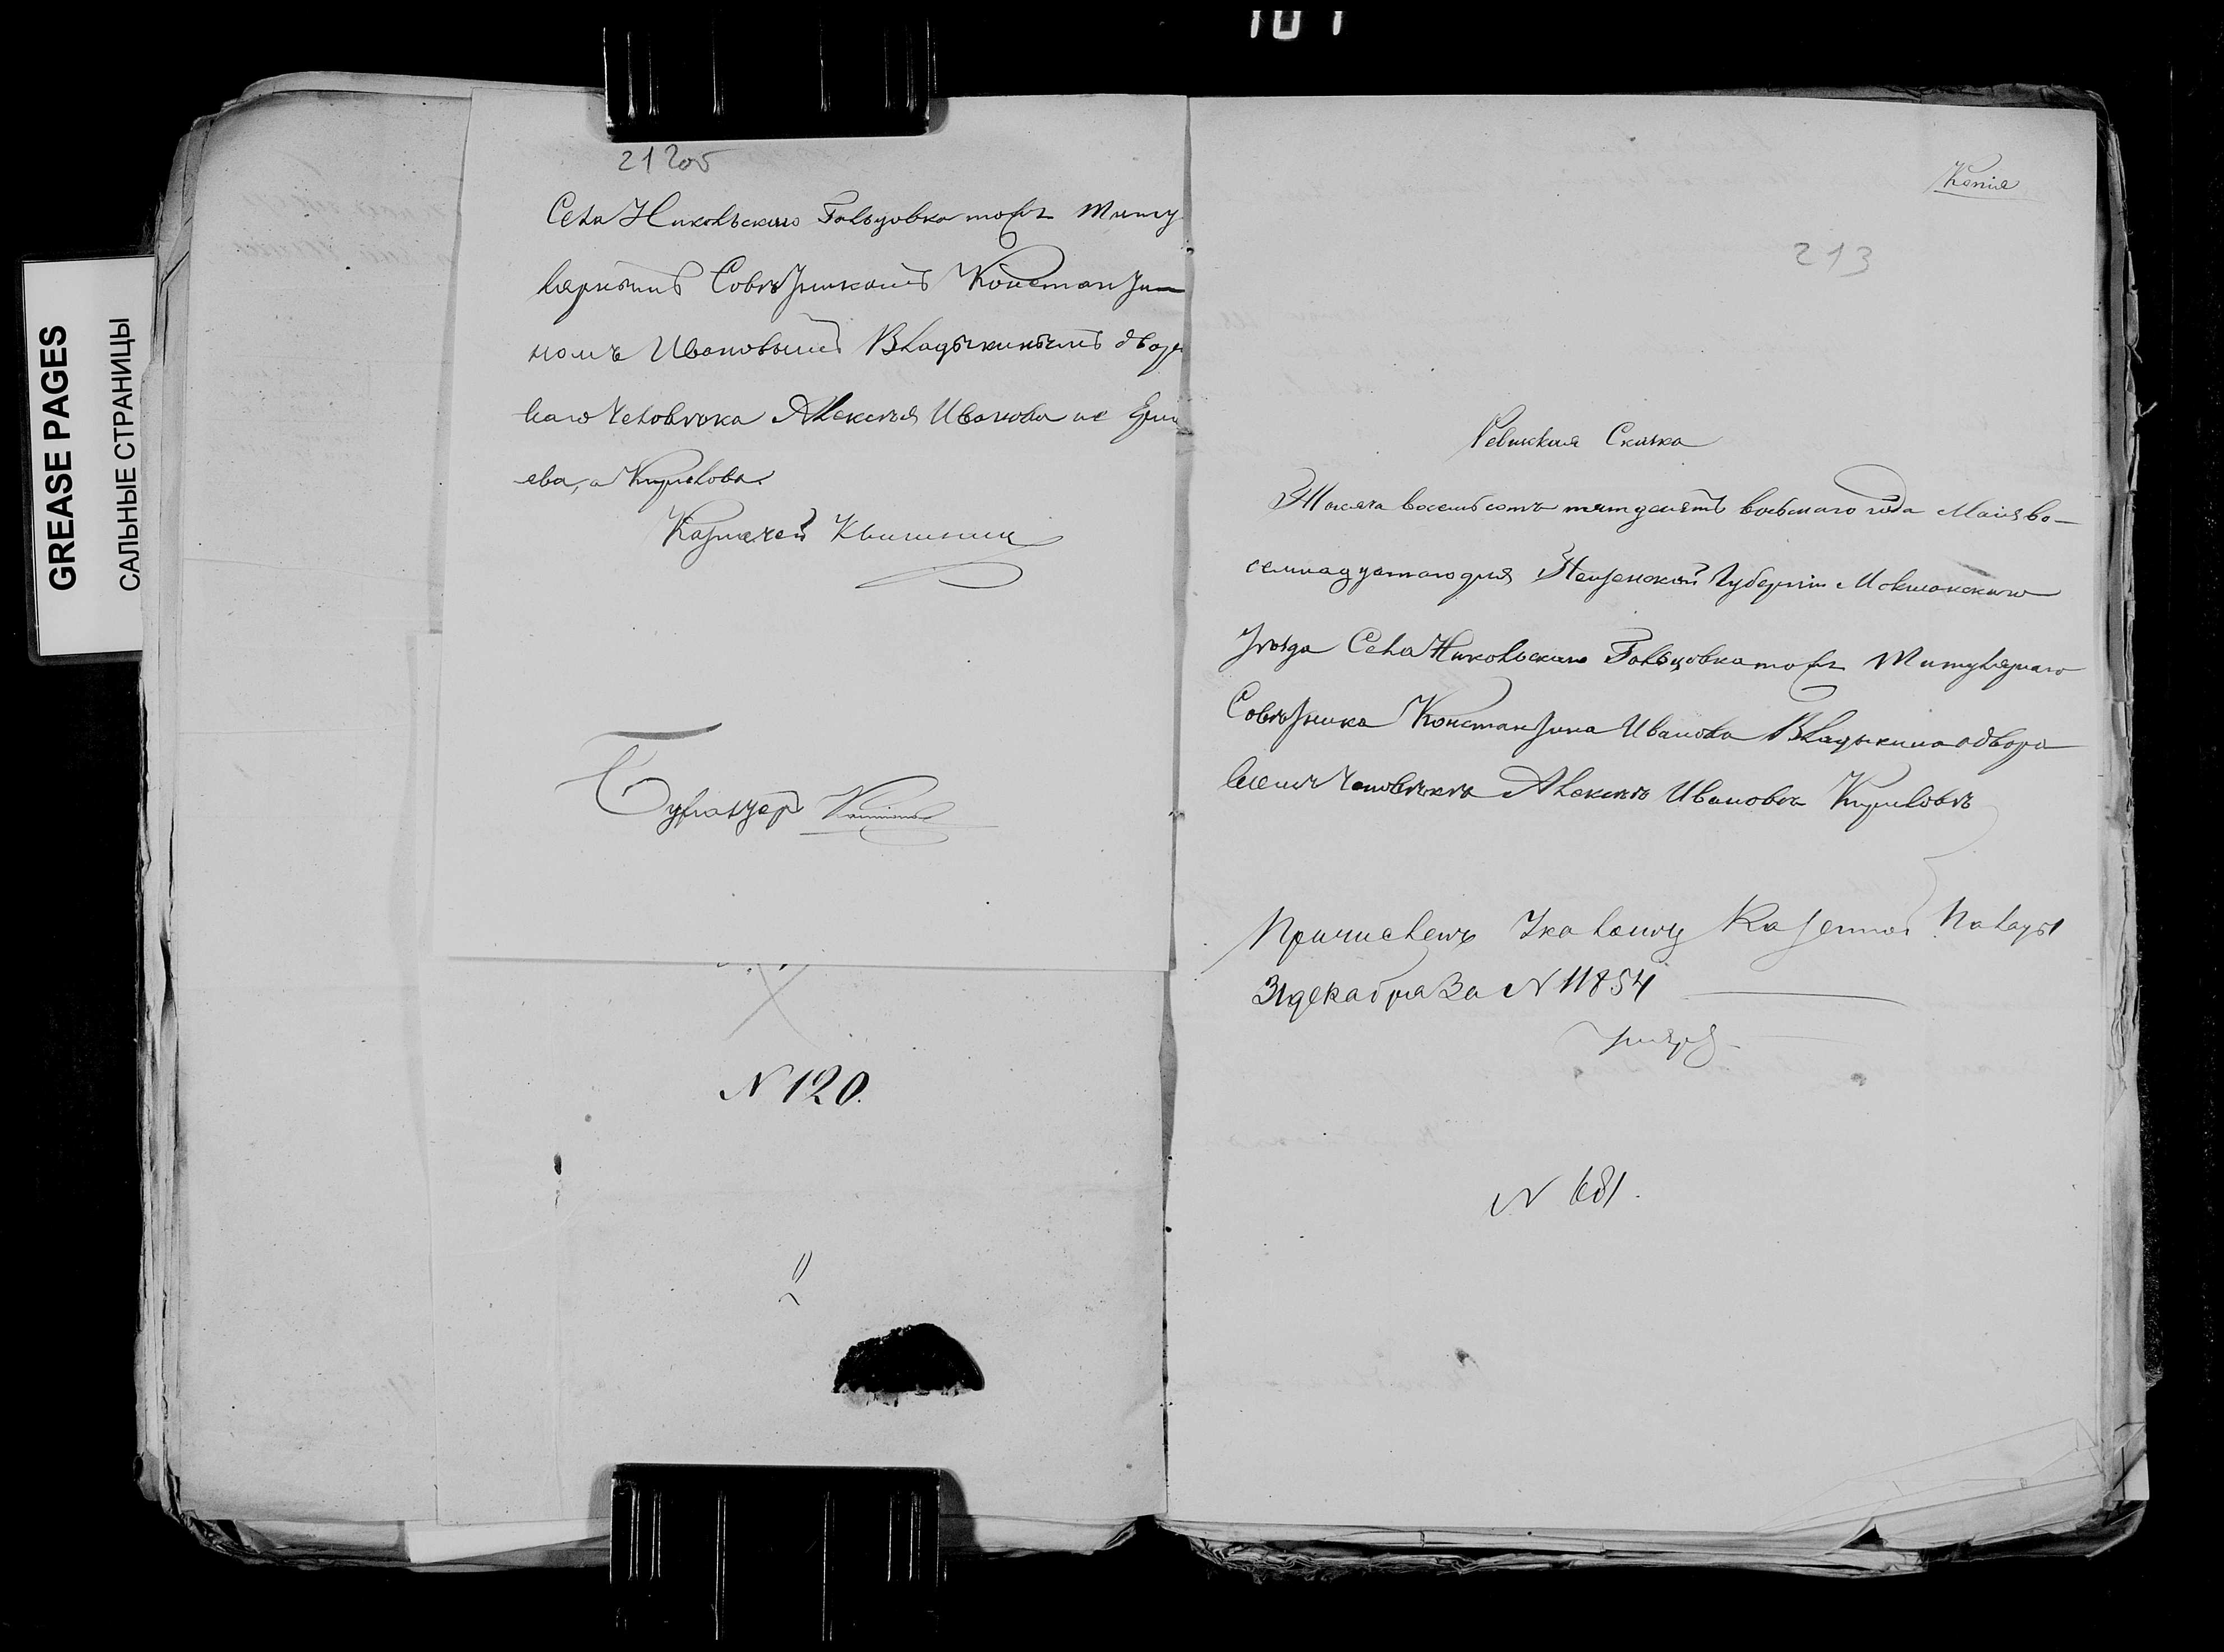 101
GREASE PAGES
САЛЬНЫЕ СТРАНИЦЫ
212об
Села Никольскаго Гольцовка тожъ Титу
лярнымъ Совѣтникомъ Константи-
номъ Ивановымъ Владыкинымъ дворо
ваго человѣка Алексѣя Иванова не
ева, а Кирилова.
Казначей
Бухгалтеръ
N 120.
Копія
213
Ревижская Сказка
Тысяча восемьсотъ пятдесятъ восьмаго года Маія во-
семнадцатаго дня Пензенской Губерніи Мокшанскаго
уѣзда Села Никольскаго Гольцовка тожъ Титулярнаго
Совѣтника Константина Иванова Владыкина о дворо
вомъ человѣкѣ Алексѣѣ Ивановѣ Кириловѣ
Причисленъ Указомъ Казенной Палаты
31 декабря За N 11854
N 681.